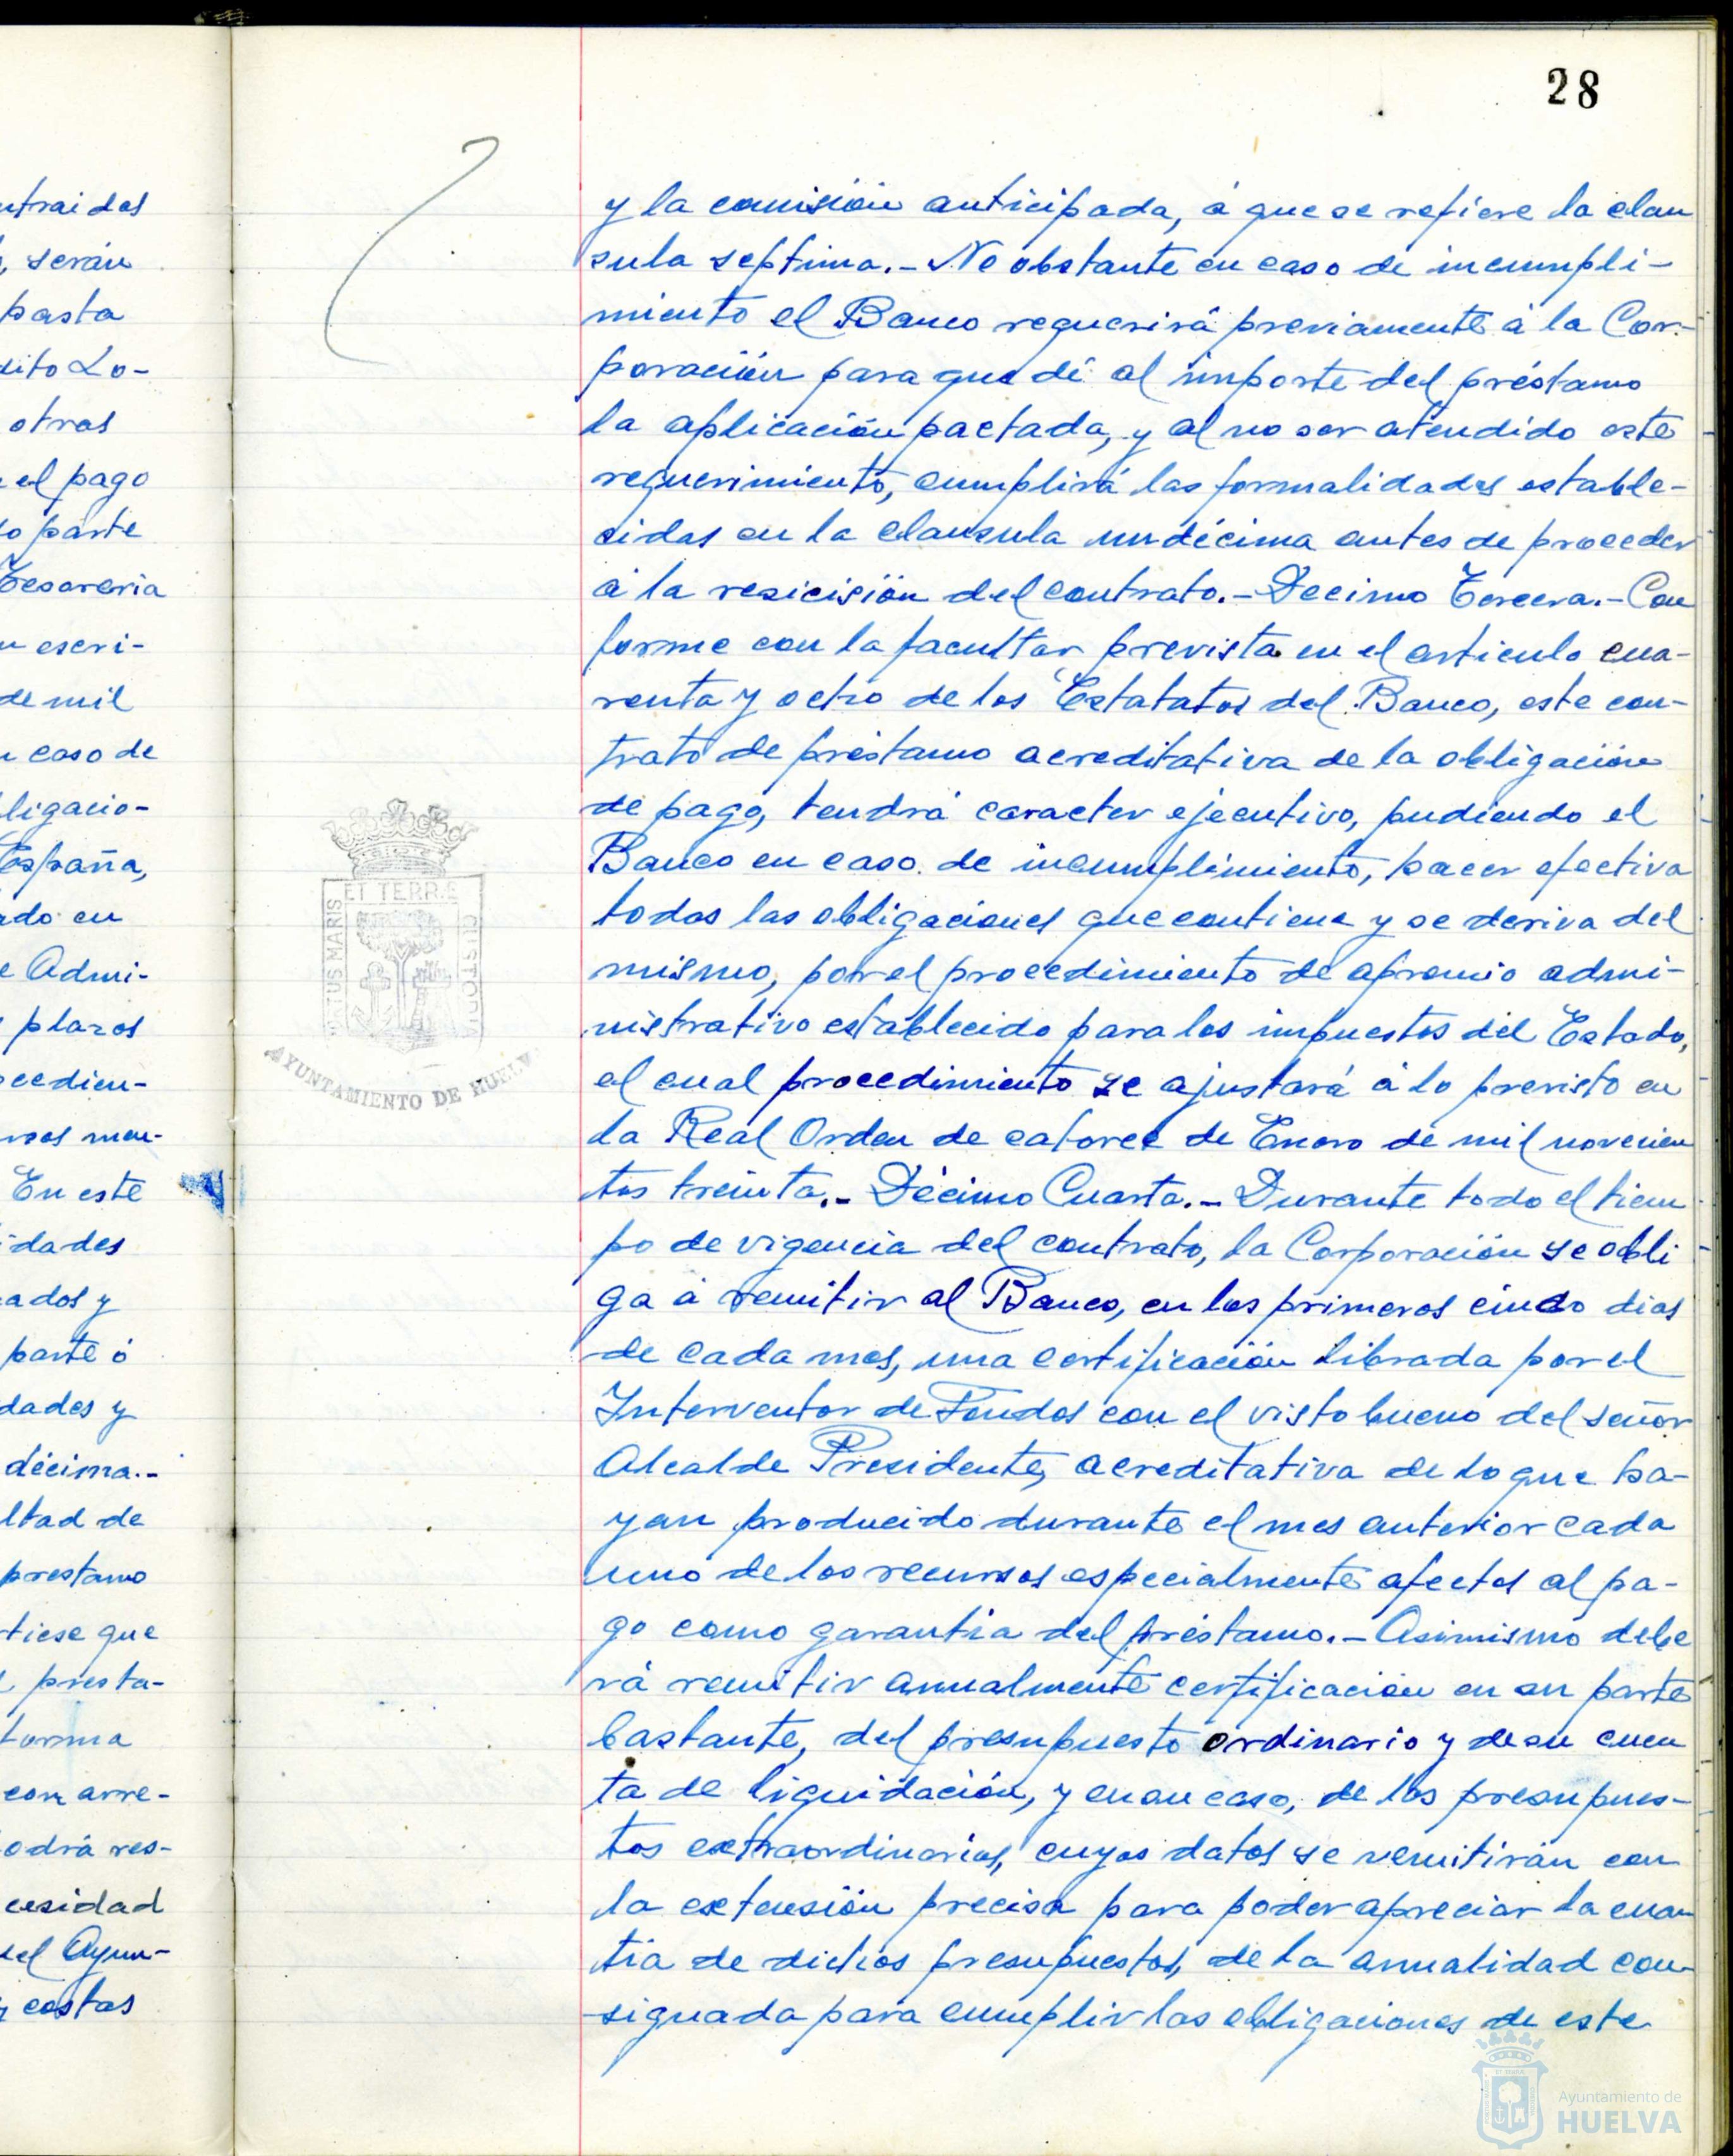 28
utraidos
, serán
pasta
dito Lo-
otras
el pago
do parte
Tesoreria
n escri-
de mil
n caso de
bligacio-
España,
ado en
e Admi-
plazos
ceedien-
rsos men-
En este
idades
ados y
parte ó
dades y
décima.-
ltad de
prestamo
tiese que
presta-
forma
con arre-
odrá res-
cesidad
del Ayun-
y costas
y la comisión anticipada, á que se refiere la clau
sula septima.- No obstante en caso de incumpli-
miento el Banco requerirá previamente á la Cor-
poración para que dé al importe del préstamo
la aplicación pactada, y al no ser atendido este
requerimiento, cumplirá las formalidades estable-
cidas en la clausula undécima antes de proceder
á la resicisión del contrato.- Decimo Tercera.- Con
forme con la facultar prevista en el articulo cua-
renta y ocho de los Estatatos del Banco, este con-
trato de préstamo acreditativa de la obligación
de pago, tendrá caracter ejecutivo, pudiendo el
Banco en caso de incumplimiento, hacer efectiva
todas las obligaciones que contiene y se deriva del
mismo, por el procedimiento de apremio admi-
nistrativo establecido para los impuestos del Estado,
el cual procedimiento se ajustará á lo previsto en
la Real Orden de catorce de Enero de mil novecien
tos treinta.- Décimo Cuarta.- Durante todo el tiem
po de vigencia del contrato, la Corporación se obli
ga á remitir al Banco, en los primeros cinco dias
de cada mes, una certificación librada por el
Interventor de Fondos con el visto bueno del señor
Alcalde Presidente, acreditativa de lo que ha-
yan producido durante el mes anterior cada
uno de los recursos especialmente afectos al pa-
go como garantia del préstamo.- Asimismo debe
rá remitir anualmente certificación en su parte
bastante, del presupuesto ordinario y de su cuen
ta de liquidación, y en su caso, de los presupues-
tos extraordinarios, cuyos datos se remitirán con
la extensión precisa para poder apreciar la cuan
tia de dichos presupuestos, de la anualidad con-
signada para cumplir las obligaciones de este
PORTUS MARIS
ET TERRE
CUSTODIA
AYUNTAMIENTO DE HUELVA
Ayuntamiento de
HUELVA